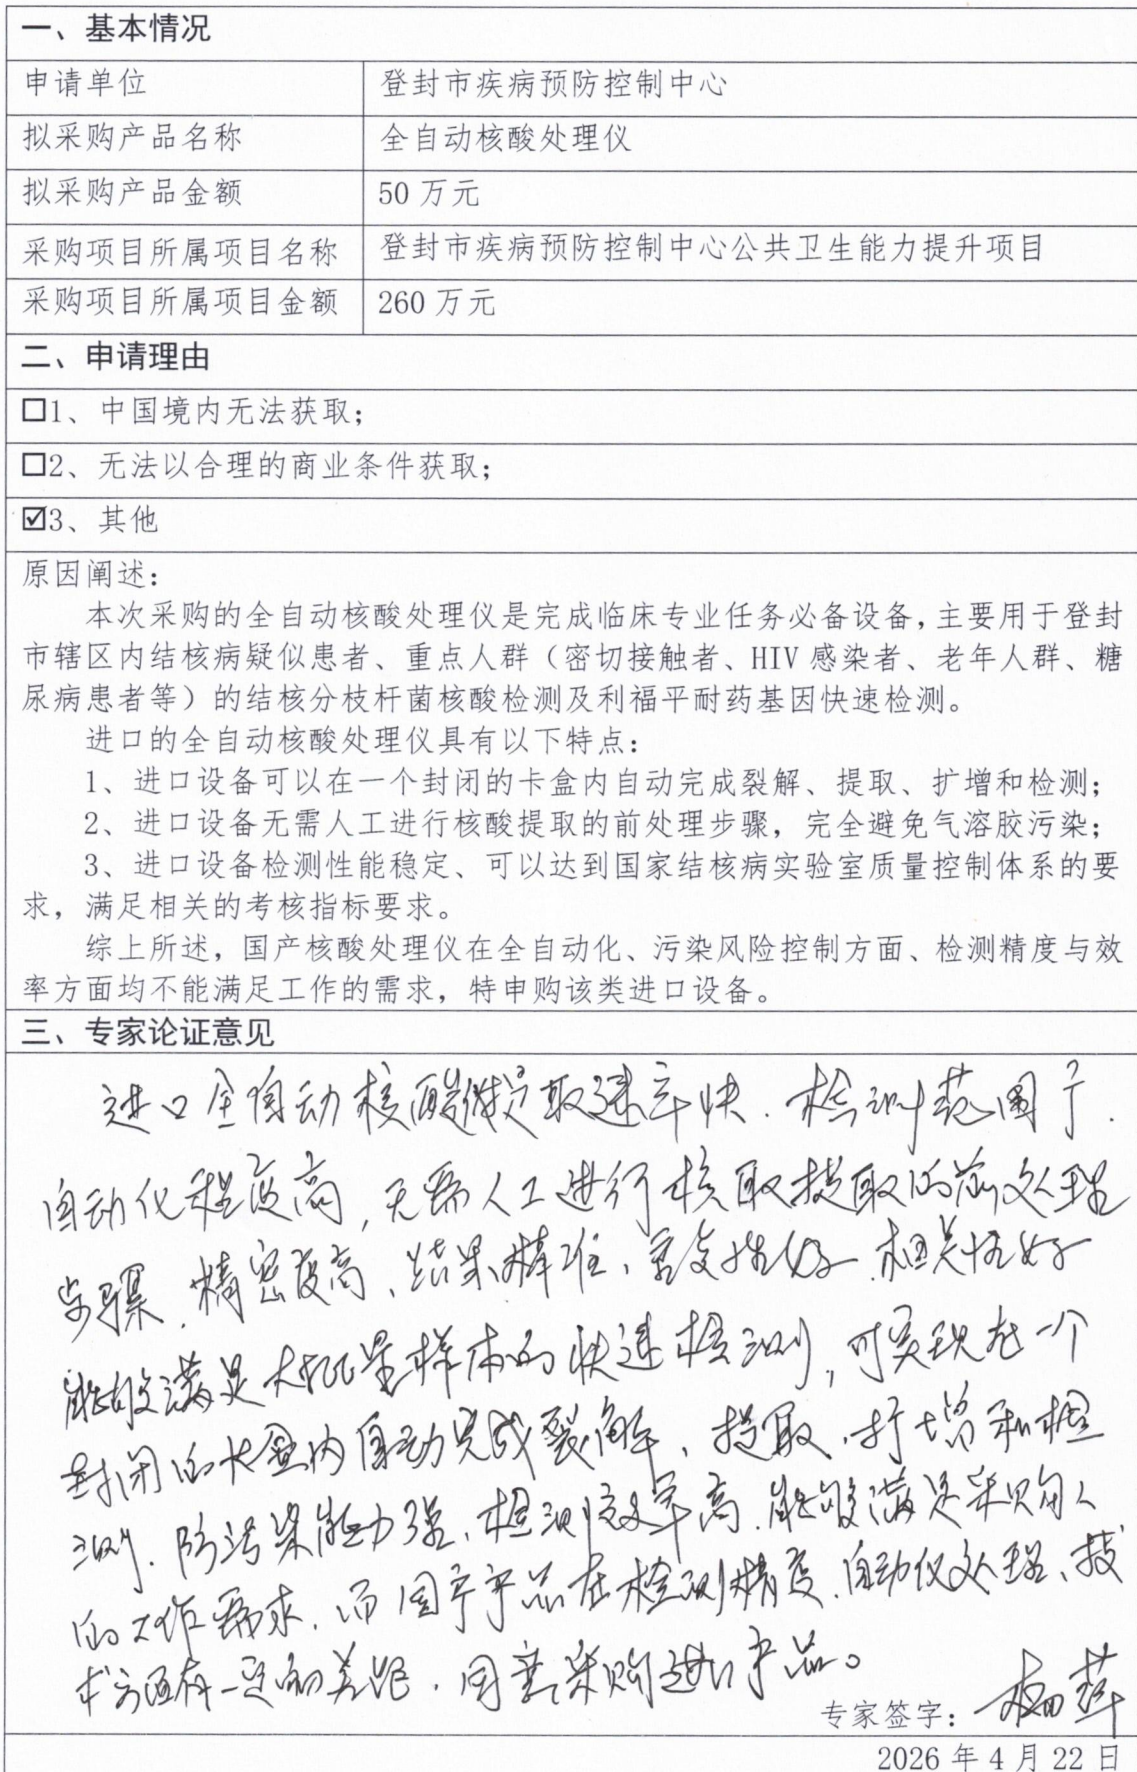 一、基本情况
申请单位 登封市疾病预防控制中心
拟采购产品名称 全自动核酸处理仪
拟采购产品金额 50 万元
采购项目所属项目名称 登封市疾病预防控制中心公共卫生能力提升项目
采购项目所属项目金额 260 万元
二、申请理由
☐1、中国境内无法获取；
☐2、无法以合理的商业条件获取；
☑3、其他
原因阐述：
本次采购的全自动核酸处理仪是完成临床专业任务必备设备，主要用于登封
市辖区内结核病疑似患者、重点人群（密切接触者、HIV 感染者、老年人群、糖
尿病患者等）的结核分枝杆菌核酸检测及利福平耐药基因快速检测。
进口的全自动核酸处理仪具有以下特点：
1、进口设备可以在一个封闭的卡盒内自动完成裂解、提取、扩增和检测；
2、进口设备无需人工进行核酸提取的前处理步骤，完全避免气溶胶污染；
3、进口设备检测性能稳定、可以达到国家结核病实验室质量控制体系的要
求，满足相关的考核指标要求。
综上所述，国产核酸处理仪在全自动化、污染风险控制方面、检测精度与效
率方面均不能满足工作的需求，特申购该类进口设备。
三、专家论证意见
进口全自动核酸提取速率快．检测范围广．
自动化程度高，无需人工进行核取提取的前处理
步骤．精密度高、结果精准、重复性好．相关性好
能够满足大批量样本的快速检测，可实现在一个
封闭的卡盒内自动完成裂解、提取、扩增和检
测．防污染能力强、检测效率高．能够满足采购人
的工作需求．而国产产品在检测精度．自动化处理、技
术方面有一定的差距．同意采购进口产品。
专家签字：
2026 年 4 月 22 日